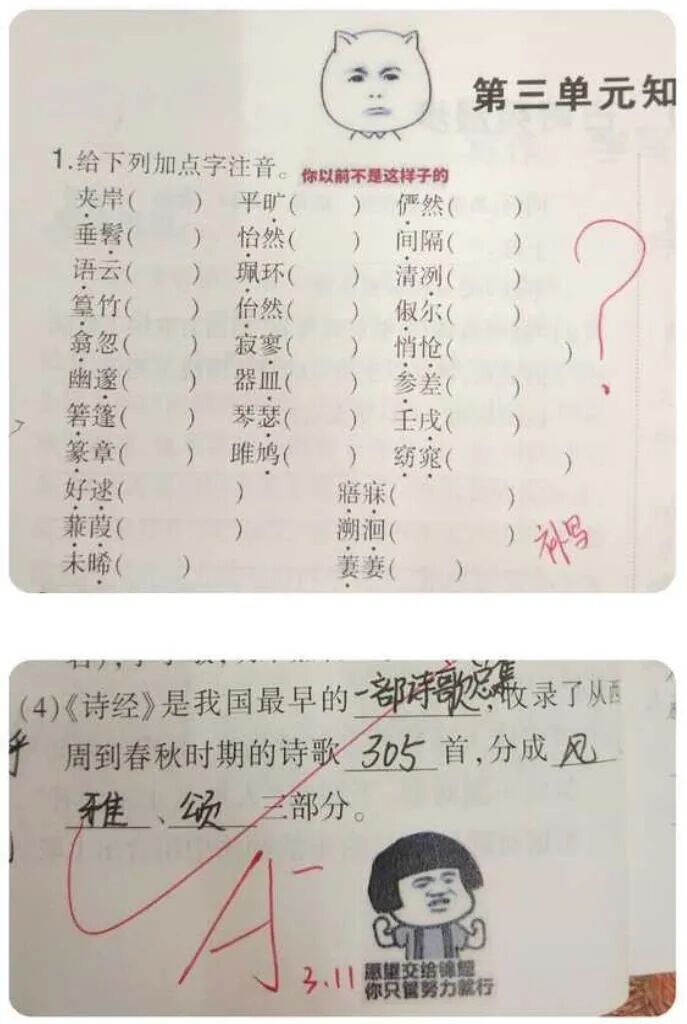 第三单元知
1.给下列加点字注音。
你以前不是这样子的
夹岸( ) 平旷( ) 俨然( )
垂髫( ) 怡然( ) 间隔( )
语云( ) 珮环( ) 清冽( )
篁竹( ) 怡然( ) 俶尔( )
翕忽( ) 寂寥( ) 悄怆( )
幽邃( ) 器皿( ) 参差( )
箬篷( ) 琴瑟( ) 壬戌( )
篆章( ) 雎鸠( ) 窈窕( )
好逑( ) 寤寐( )
蒹葭( ) 溯洄( )
未晞( ) 萋萋( )
?
补写
(4)《诗经》是我国最早的一部诗歌总集,收录了从西
周到春秋时期的诗歌 305 首,分成 风、
雅、颂 三部分。
A-
3.11
愿望交给锦鲤
你只管努力就行